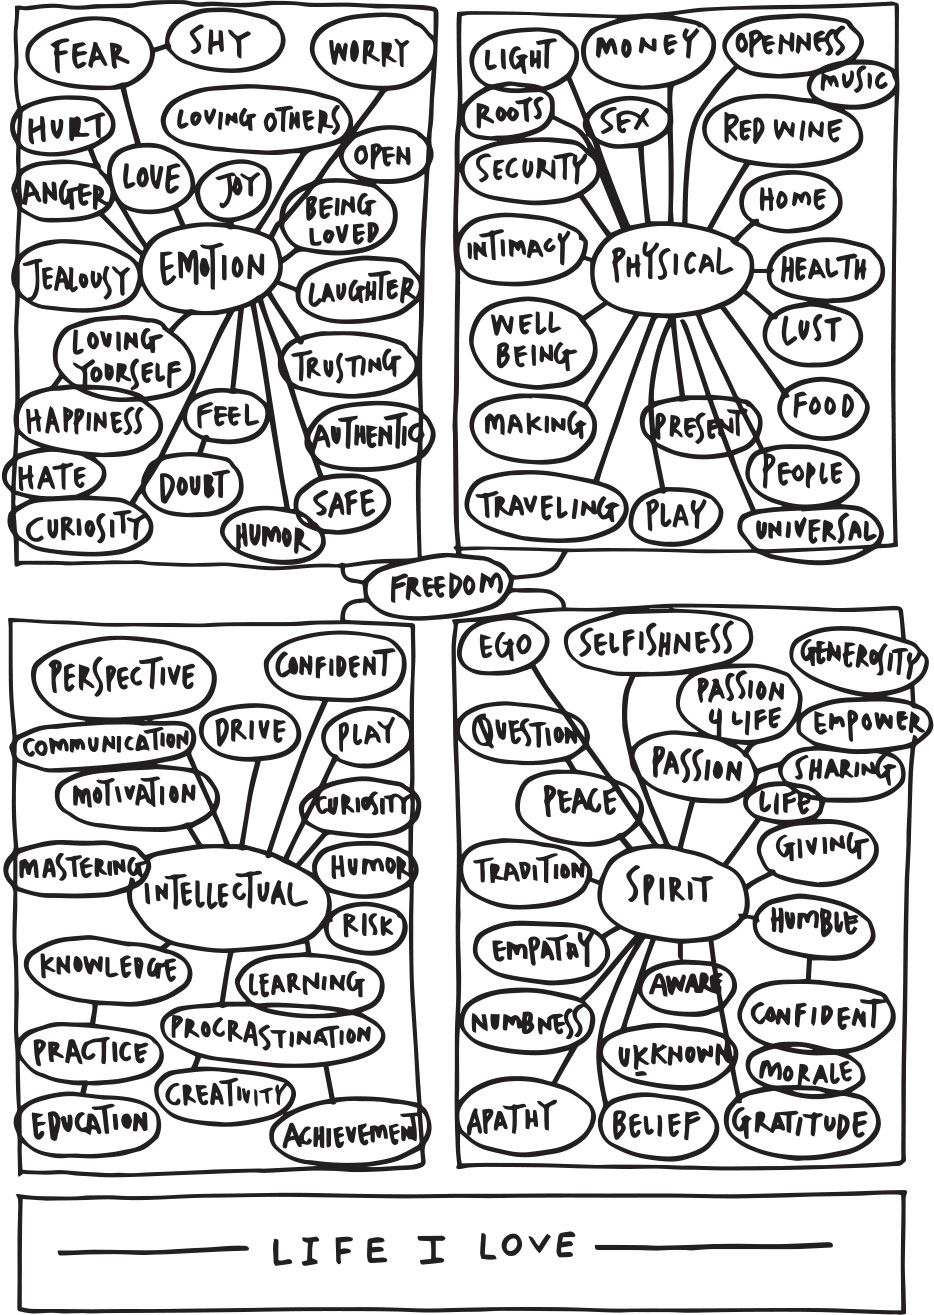 FEAR
SHY
WORRY
HURT
LOVING OTHERS
OPEN
ANGER
LOVE
JOY
BEING
LOVED
JEALOUSY
EMOTION
LAUGHTER
LOVING
YOURSELF
TRUSTING
HAPPINESS
FEEL
AUTHENTIC
HATE
DOUBT
SAFE
CURIOSITY
HUMOR
LIGHT
MONEY
OPENNESS
MUSIC
ROOTS
SEX
RED WINE
SECURITY
HOME
INTIMACY
PHYSICAL
HEALTH
WELL
BEING
LUST
MAKING
PRESENT
FOOD
PEOPLE
TRAVELING
PLAY
UNIVERSAL
FREEDOM
PERSPECTIVE
CONFIDENT
COMMUNICATION
DRIVE
PLAY
MOTIVATION
CURIOSITY
MASTERING
INTELLECTUAL
HUMOR
RISK
KNOWLEDGE
LEARNING
PROCRASTINATION
PRACTICE
CREATIVITY
EDUCATION
ACHIEVEMENT
EGO
SELFISHNESS
GENEROSITY
PASSION
4 LIFE
EMPOWER
QUESTION
PASSION
SHARING
PEACE
LIFE
GIVING
TRADITION
SPIRIT
HUMBLE
EMPATHY
AWARE
NUMBNESS
CONFIDENT
UKKNOWN
MORALE
APATHY
BELIEF
GRATITUDE
LIFE I LOVE